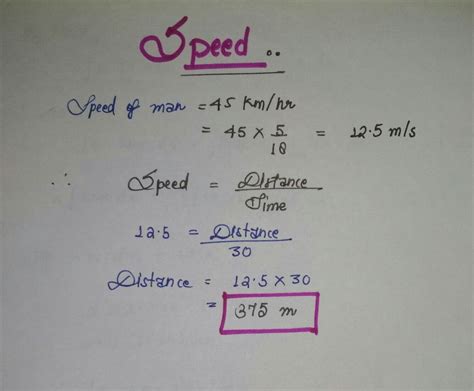 Speed ..
Speed of man = 45 km/hr
= 45 × 5/18 = 12.5 m/s
∴ Speed = Distance/Time
12.5 = Distance/30
Distance = 12.5 × 30
= 375 m